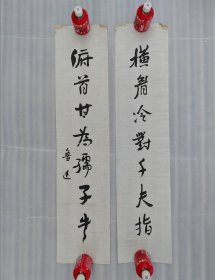 横眉冷對千夫指
俯首甘为孺子牛
魯迅